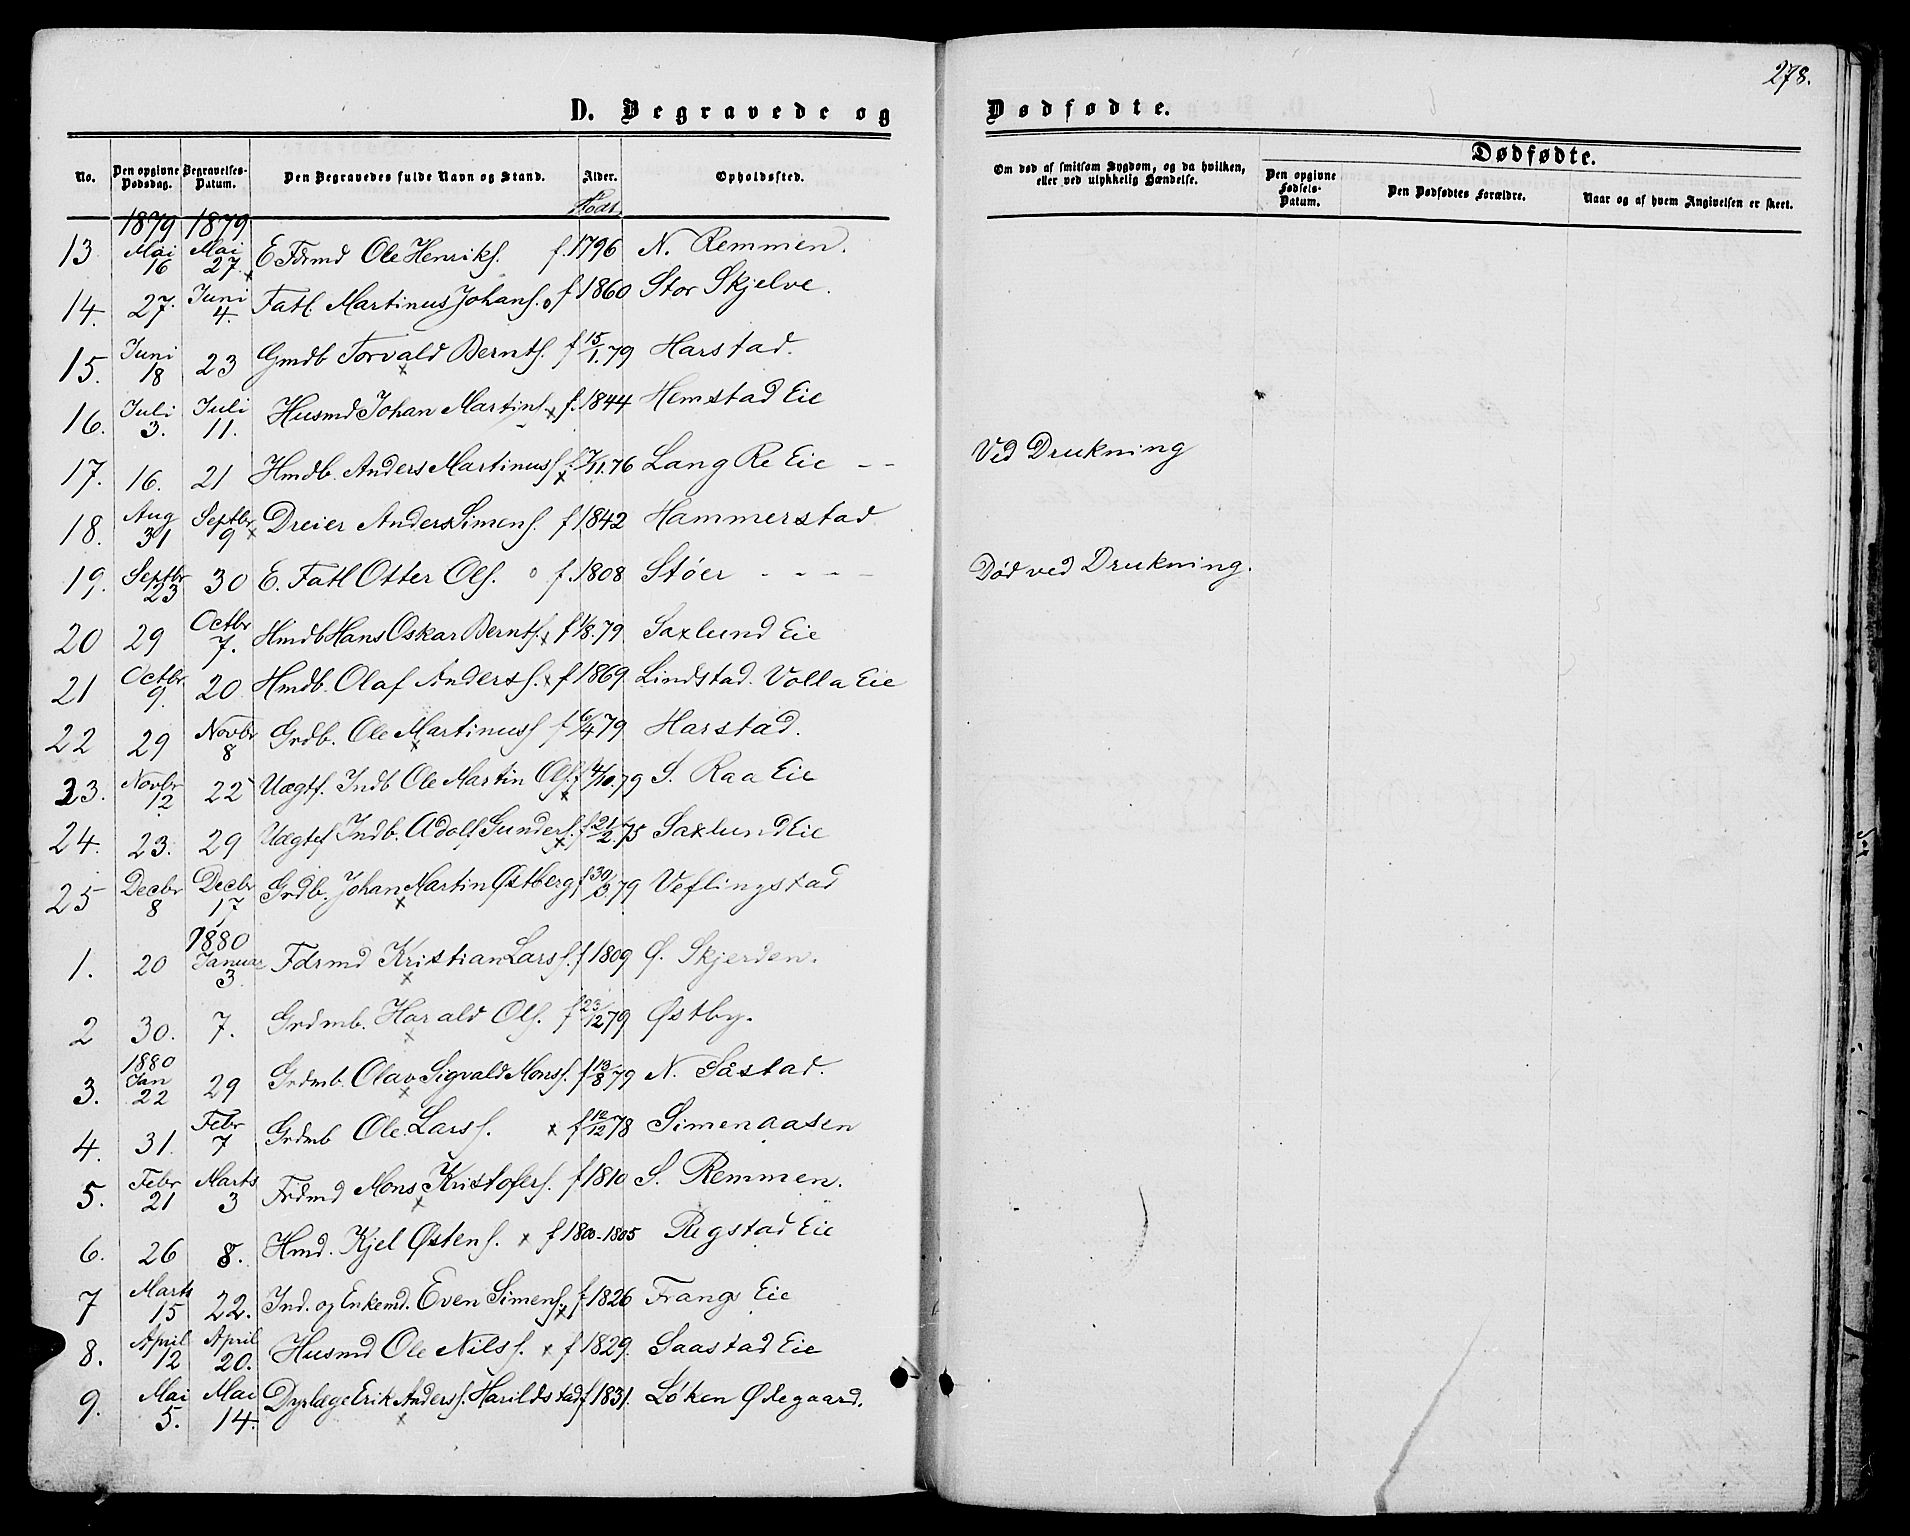 278.
D. Begravede og Dødfødte.
No. Den opgivne Dødsdag. Begravelses-Datum. Den Begravedes fulde Navn og Stand. Alder. Opholdssted. Om død af smitsom Sygdom, og da hvilken, eller ved ulykkelig Hændelse. Dødfødte.
Den opgivne Fødsels-Datum. Den Dødfødtes Forældre. Naar og af hvem Angivelsen er skeet.
Født.
1879 1879
13 Mai 16 Mai 27 x E Fdrmd Ole Henriks. f. 1796 N. Remmen.
14. 27. Juni 4. Fatl. Martinus Johans. o f 1860 Stor Skjelve.
15. Juni 18 23 Gmdb Torvald Bernts. x f 15/1.79 Harstad.
16. Juli 3. Juli 11. Husmd Johan Martins x f. 1844 Hemstad Eie
17. 16. 21 Hmdb. Anders Martinuss x f. 7/11.76 Lang Re Eie - - Ved Drukning
18. Aug 31 Septbr 9 x Dreier Anders Simens. f 1842 Hammerstad
19. Septbr 23 30 E. Fatl Otter Ols. o f. 1808 Støer - - - Død ved Drukning.
20 29 Octbr 7. Hmdb Hans Oskar Bernts. x f 1/8.79. Saxlund Eie
21 Octbr 9. 20 Hmdb. Olaf Anderss. x f 1869. Lindstad. Volla Eie
22 29 Novbr 8 Grdb. Ole Martinuss x f 6/4 79 Harstad.
23. Novbr 12 22 Uægtf. Indb Ole Martin Ols. x f 4/10.79 S. Raa Eie
24. 23. 29 Uægtef Indb. Adolf Gunders. x f 21/2.75 Saxlund Eie
25 Decbr 8 Decbr 17 Grdb. Johan Martin Østberg x f 30/3.79 Veflingstad
1880
1. 20 Januar 3. Fdrmd Kristian Larss. x f 1809 Ø. Skjerden.
2 30. 7. Grdmb. Harald Ols. x f 23/12 79 Østby.
1880
3. Jan 22 29 Grdmb. Olav Sigvald Mons. x f 13/8 79 N. Såstad.
4. 31. Febr 7 Grdmb Ole Larss. x f 12/12 78 Simenaasen
5. Febr 21 Marts 3 Frdmd Mons Kristofers. x f 1810 S. Remmen.
6. 26 8. Hmd. Kjel Østens. x f 1800-1805 Regstad Eie
7 Marts 15 22. Ind. og Enkemd. Even Simens x f 1826 Frangs Eie
8. April 12 April 20. Husmd Ole Nilss. x f 1829. Saastad Eie
9. Mai 5. Mai 14. Dyrlæge Erik Anderss. Harildstad x f 1831. Løken Ødegaard.